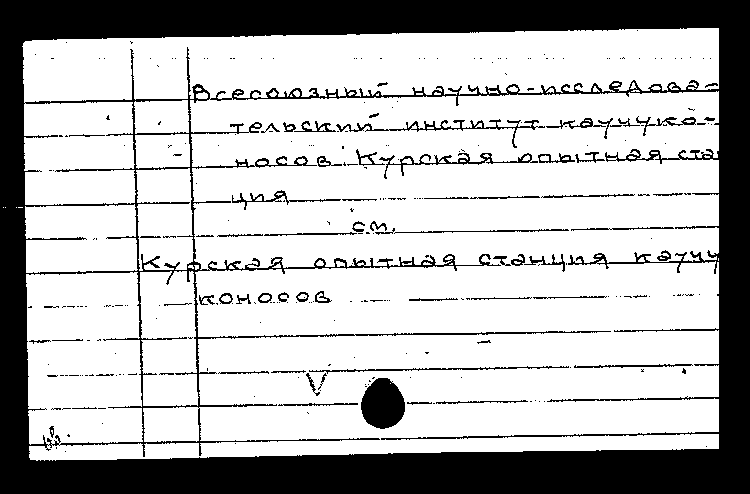 Всесоюзный научно-исследова-
тельский институт каучуко-
носов. Курская опытная стан
ция
см.
Курская опытная станция каучу
коносов
V